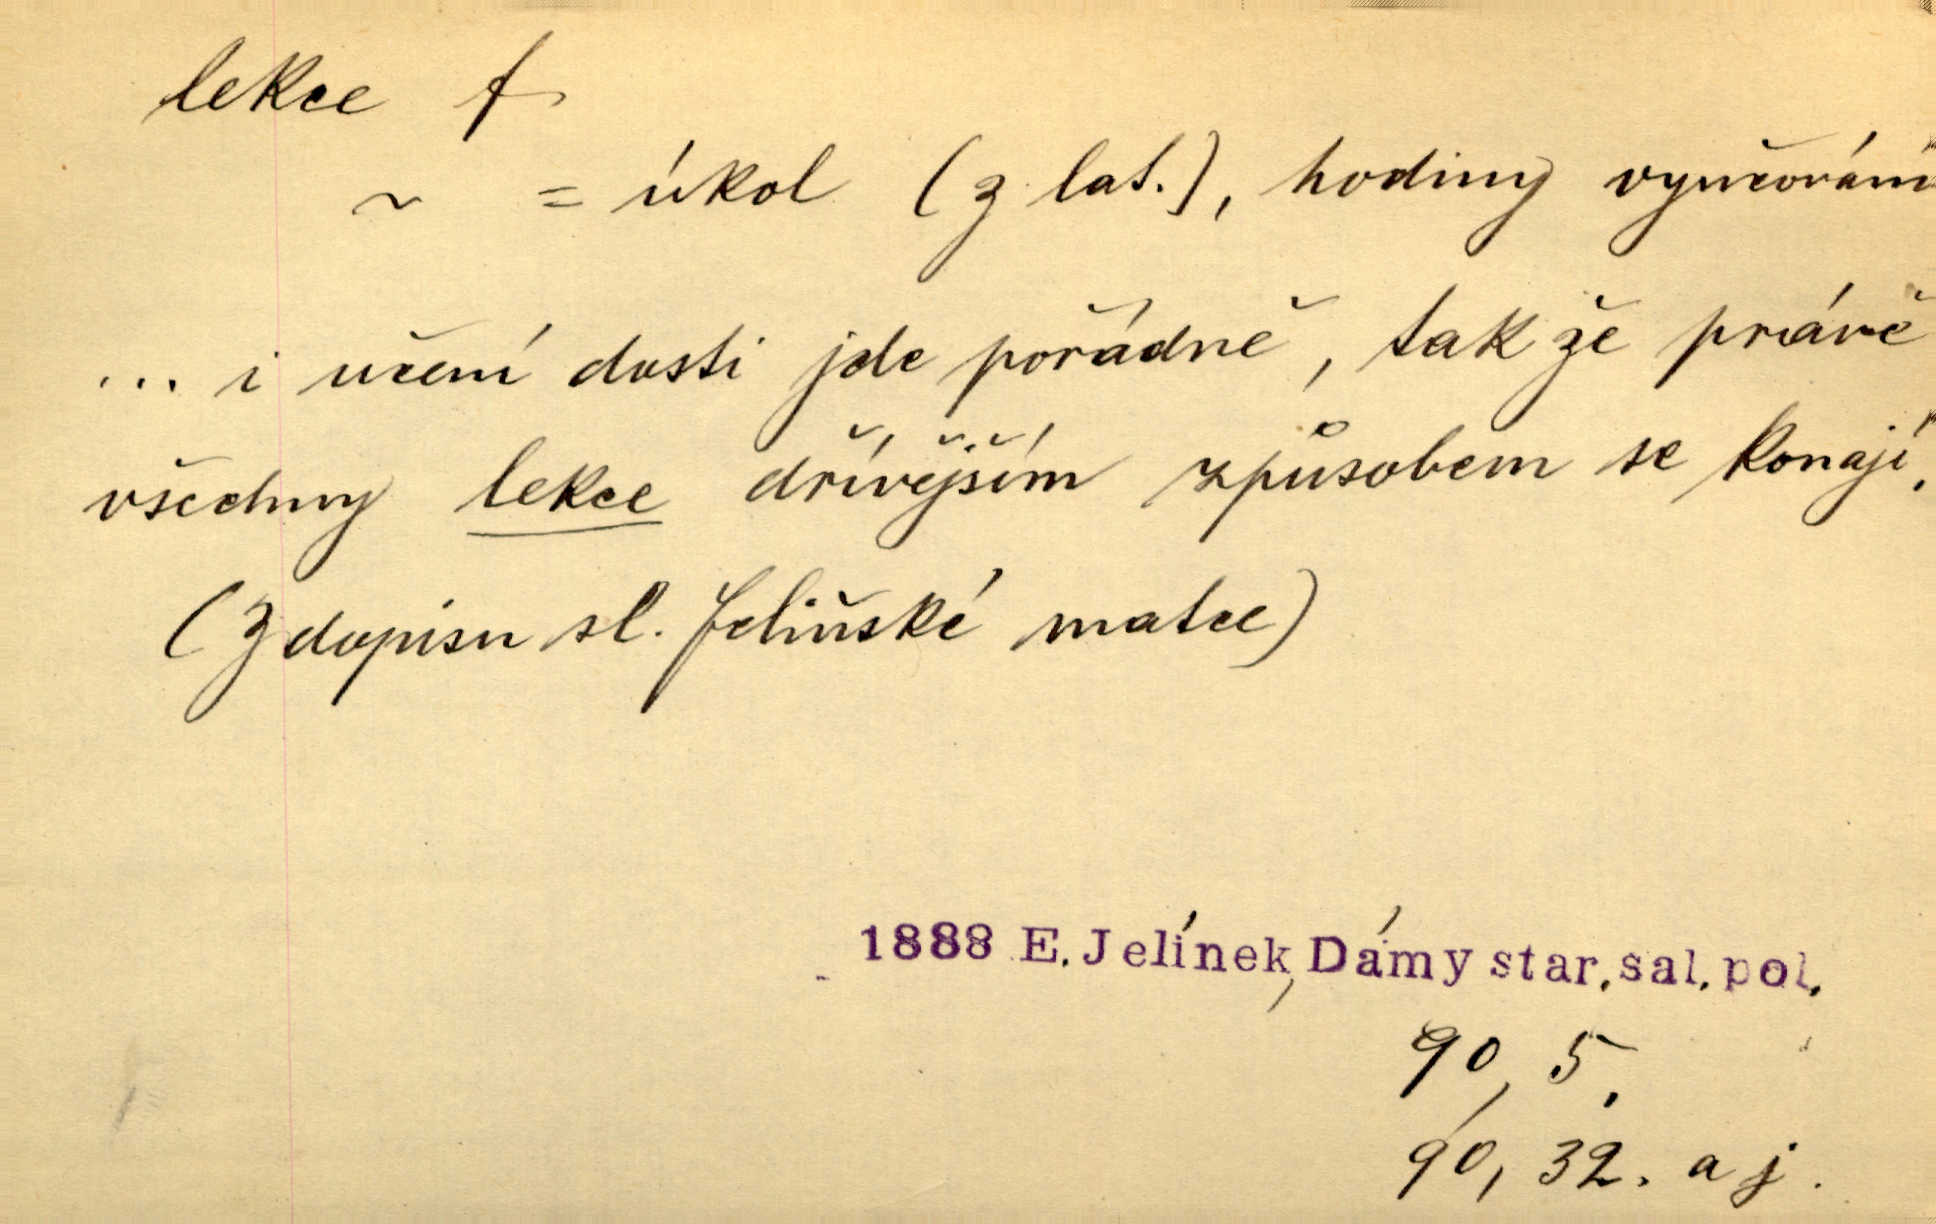 lekce f
~ = úkol (z lat.), hodiny vyučování
... i učení dosti jde pořádně, tak že právě
všechny lekce dřívějším způsobem se konají.
(Z dopisu sl. Felińské matce)
1888 E. Jelínek, Dámy star. sal. pol.
90, 5.
90, 32. a j.